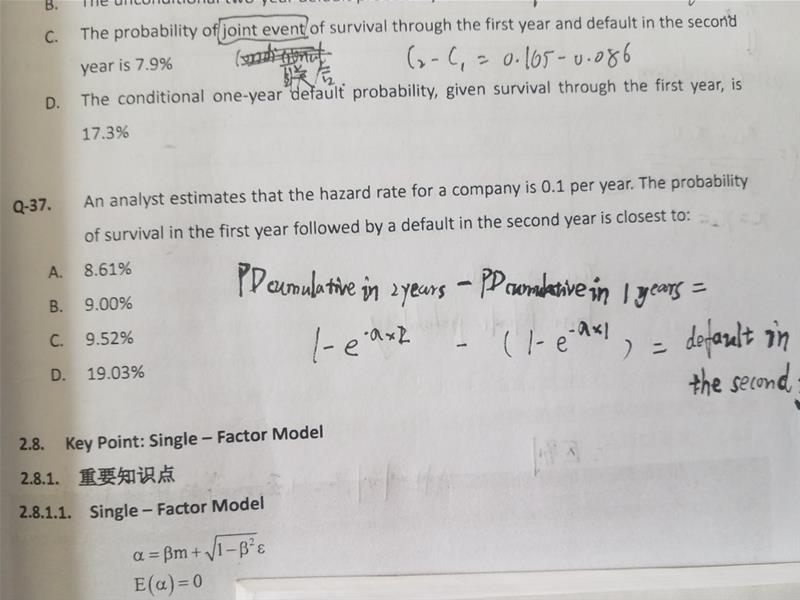 B.
C. The probability of joint event of survival through the first year and default in the second
year is 7.9%
C₂ - C₁ = 0.165 - 0.086
D. The conditional one-year default probability, given survival through the first year, is
17.3%
Q-37. An analyst estimates that the hazard rate for a company is 0.1 per year. The probability
of survival in the first year followed by a default in the second year is closest to:
A. 8.61%
B. 9.00%
C. 9.52%
D. 19.03%
PD cumulative in 2 years - PD cumulative in 1 years =
1 - e^-a×2 - (1 - e^-a×1) = default in
the second
2.8. Key Point: Single – Factor Model
2.8.1. 重要知识点
2.8.1.1. Single – Factor Model
α = βm + √1-β² ε
E(α) = 0